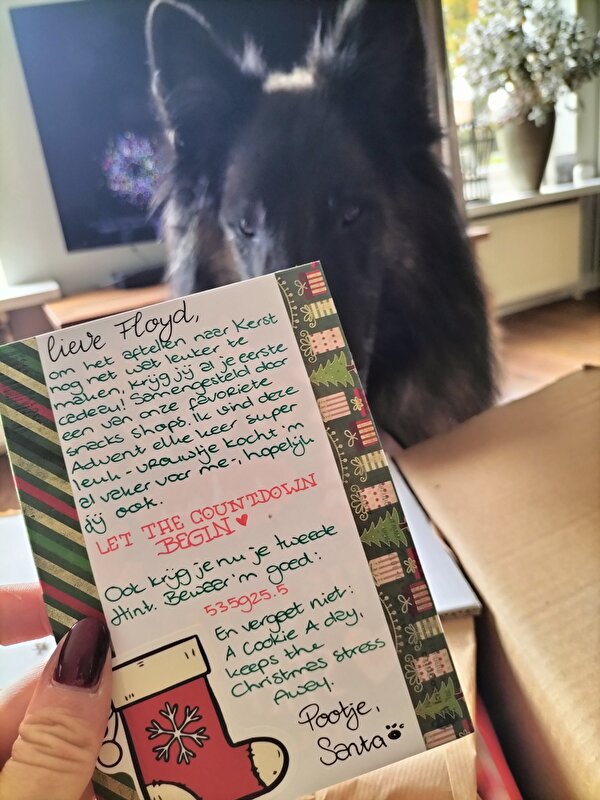 lieve Floyd,
om het aftellen naar Kerst
nog net wat leuker te
maken, krijg jij al je eerste
cadeau! Samengesteld door
een van onze favoriete
snacks shops. Ik vind deze
Advent elke keer super
leuk - vrouwtje kocht 'm
al vaker voor me -, hopelijk
jij ook.
LET THE COUNTDOWN
BEGIN ♥
Ook krijg je nu je tweede
Hint. Bewaar 'm goed:
535925.5
En vergeet niet:
A Cookie A day,
keeps the
Christmas stress
Away.
Pootje,
Santa